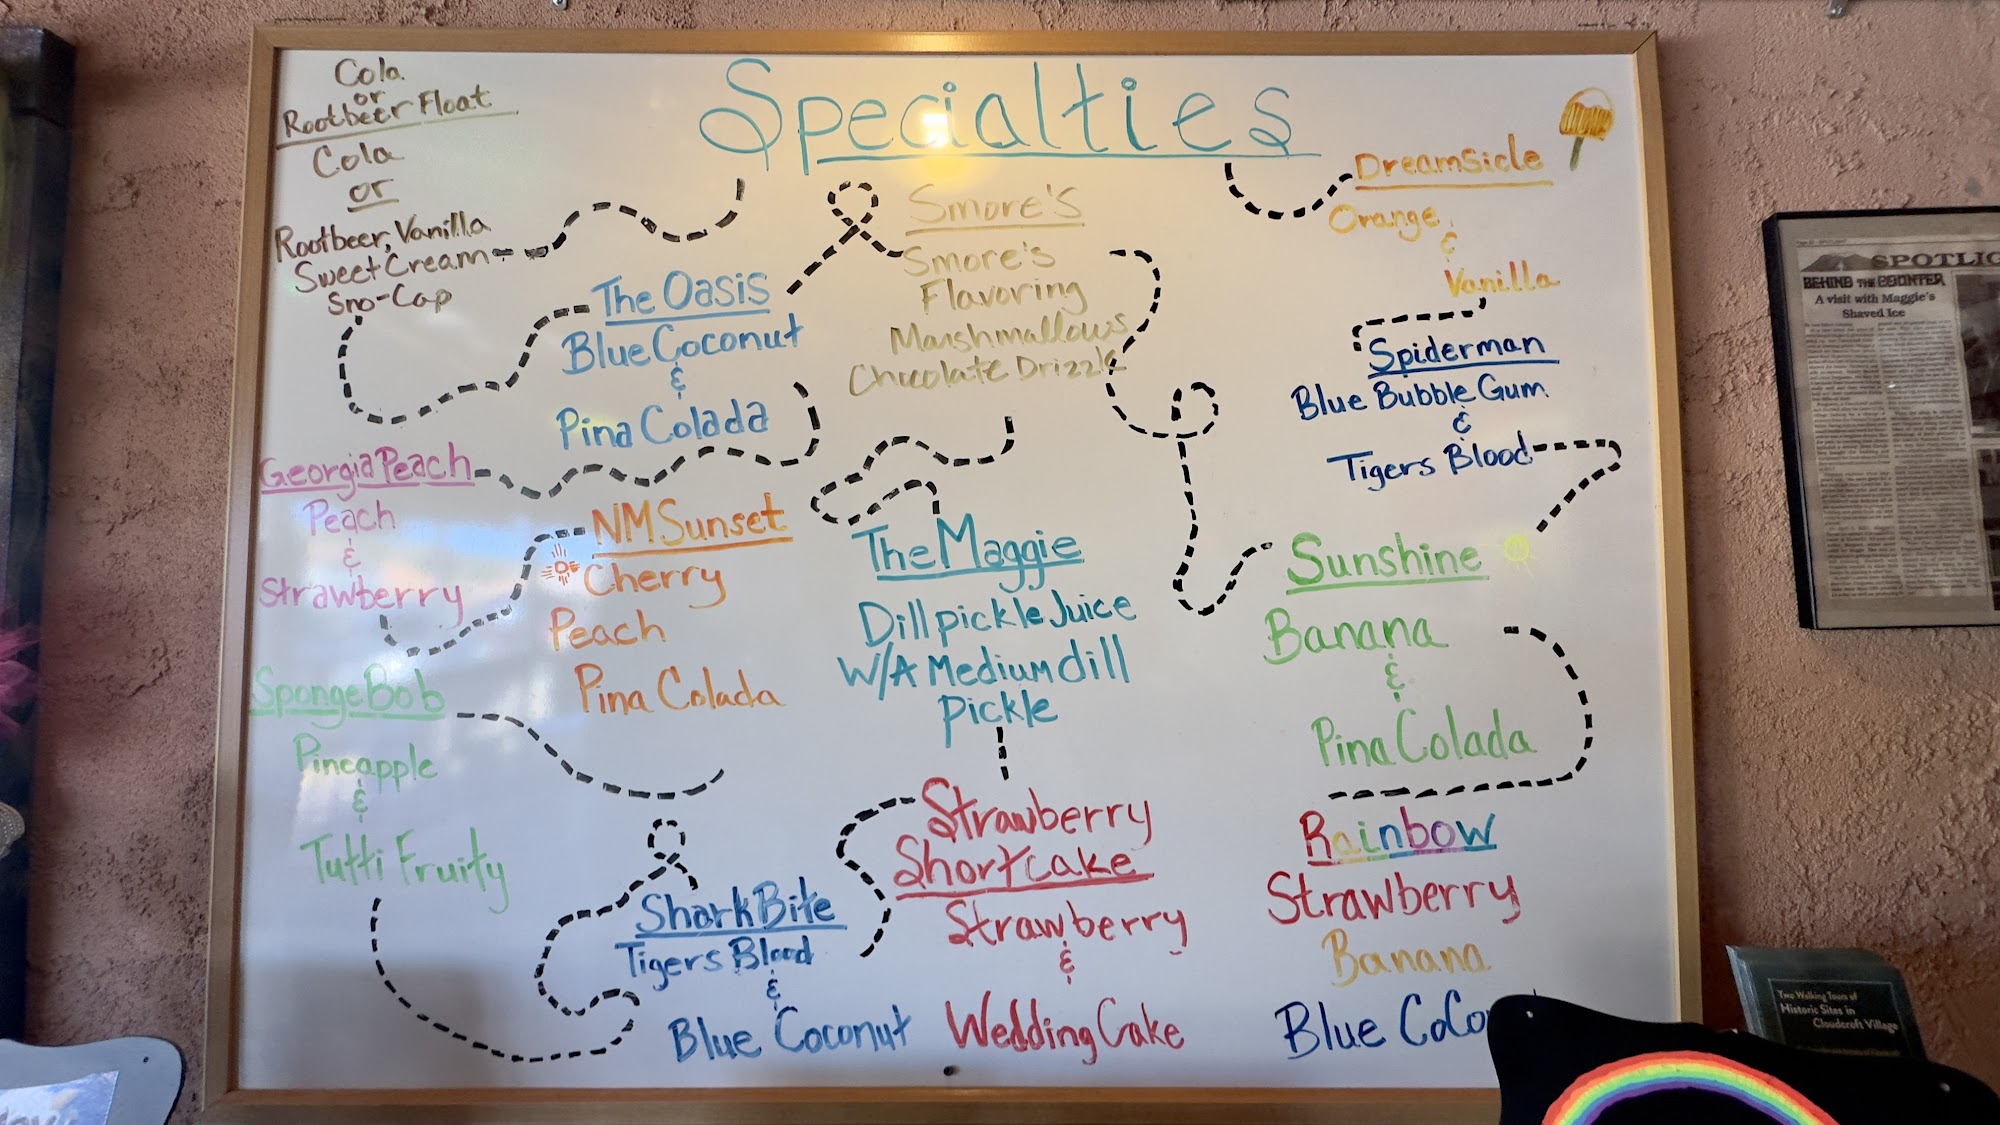 Specialties
Cola
or
Rootbeer Float
Cola
or
Rootbeer, Vanilla
Sweet Cream
Sno-Cap
The Oasis
Blue Coconut
&
Pina Colada
Smore's
Smore's
Flavoring
Marshmallows
Chocolate Drizzle
Dreamsicle
Orange
&
Vanilla
Spiderman
Blue Bubble Gum
&
Tigers Blood
Georgia Peach
Peach
&
Strawberry
NM Sunset
Cherry
Peach
Pina Colada
The Maggie
Dill pickle Juice
W/A Medium dill
Pickle
Sunshine
Banana
&
Pina Colada
SpongeBob
Pineapple
&
Tutti Fruity
Shark Bite
Tigers Blood
&
Blue Coconut
Strawberry
Shortcake
Strawberry
&
Wedding Cake
Rainbow
Strawberry
Banana
Blue CoCo
SPOTLIG
BEHIND THE COUNTER
A visit with Maggie's
Shaved Ice
Two Walking Tours of
Historic Sites in
Cloudcroft Village